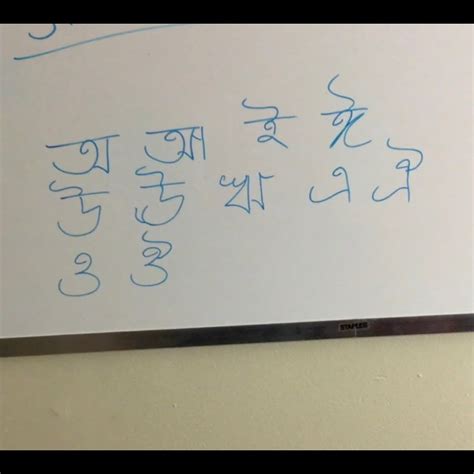 অ আ ই ঈ
উ ঊ ঋ এ ঐ
ও ঔ
STAPLES